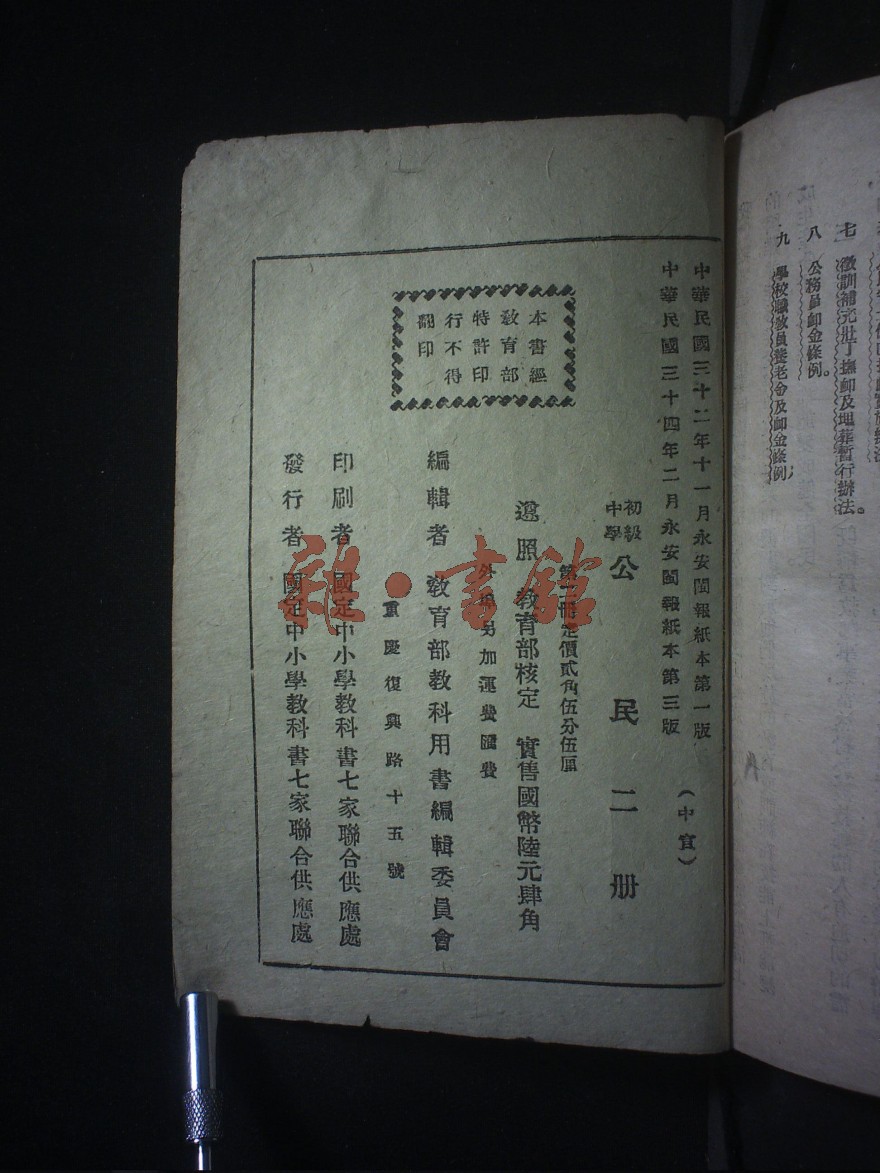 七 徵訓補充壯丁撫卹及埋葬暫行辦法。
八 公務員卹金條例。
九 學校職教員養老金及卹金條例
中華民國三十二年十一月永安閩報紙本第一版
中華民國三十四年二月永安閩報紙本第三版
(中宣)
初級中學 公民二册
第二冊定價貳角伍分伍厘
遵照教育部核定 實售國幣陸元肆角
外埠另加運費匯費
編輯者 教育部教科用書編輯委員會
重慶復興路十五號
印刷者 國定中小學教科書七家聯合供應處
發行者 國定中小學教科書七家聯合供應處
本書經
教育部
特許印
行不得
翻印
雜·書館